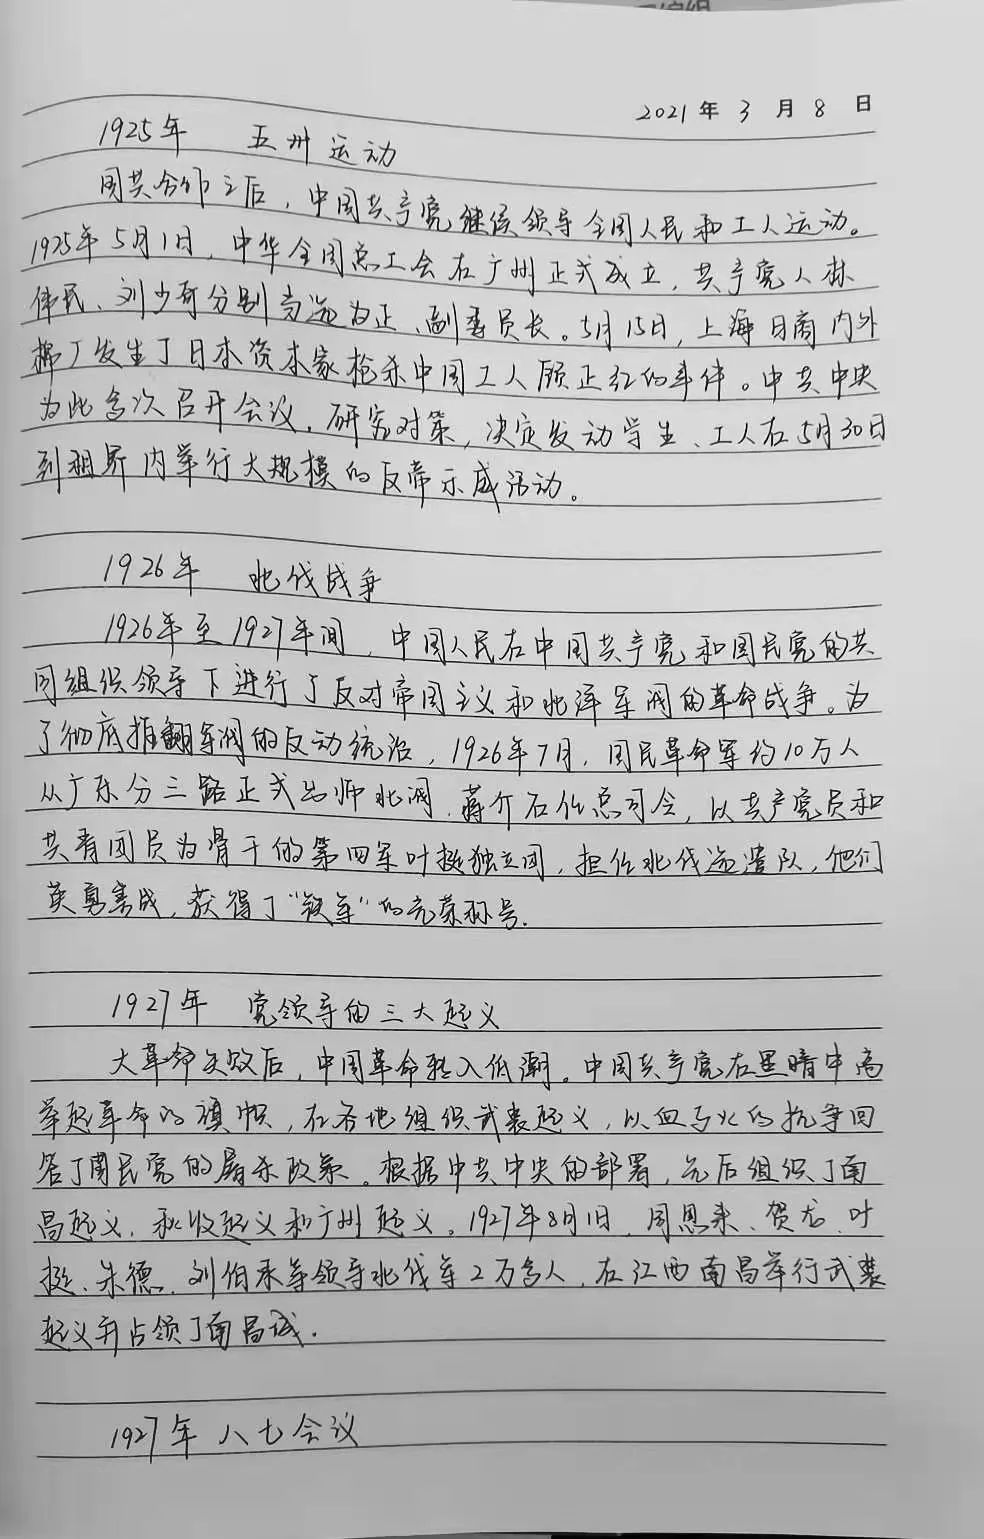 2021年3月8日
1925年 五卅运动
国共合作之后，中国共产党继续领导全国人民和工人运动。
1925年5月1日，中华全国总工会在广州正式成立，共产党人林
伟民、刘少奇分别当选为正、副委员长。5月15日，上海日商内外
棉厂发生了日本资本家枪杀中国工人顾正红的事件。中共中央
为此多次召开会议，研究对策，决定发动学生、工人在5月30日
到租界内举行大规模的反帝示威活动。
1926年 北伐战争
1926年至1927年间，中国人民在中国共产党和国民党的共
同组织领导下进行了反对帝国主义和北洋军阀的革命战争。为
了彻底推翻军阀的反动统治，1926年7月，国民革命军约10万人
从广东分三路正式出师北阀.蒋介石任总司令，以共产党员和
共青团员为骨干的第四军叶挺独立团，担任北伐遣队，他们
英勇善战，获得了“铁军”的光荣称号.
1927年 党领导的三大起义
大革命失败后，中国革命转入低潮。中国共产党在黑暗中高
举起革命的旗帜，在各地组织武装起义，以血与火的抗争回
答了国民党的屠杀政策。根据中共中央的部署，先后组织了南
昌起义，秋收起义和广州起义。1927年8月1日，周恩来、贺龙、叶
挺、朱德、刘伯承等领导北伐军2万多人，在江西南昌举行武装
起义并占领了南昌城.
1927年 八七会议